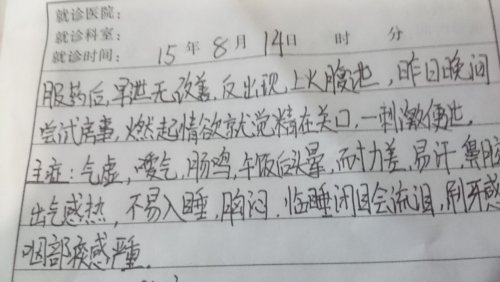 就诊医院：
就诊科室：
就诊时间： 15 年 8 月 14 日 时 分
服药后，早泄无改善，反出现上火腹泄，昨日晚间
尝试房事，燃起情欲就觉精在关口，一刺激便泄。
主症：气虚，嗳气，肠鸣，午饭后头晕，耐力差，易汗，鼻腔
出气感热，不易入睡，胸闷，临睡闭目会流泪，刷牙感
咽部痰感严重。